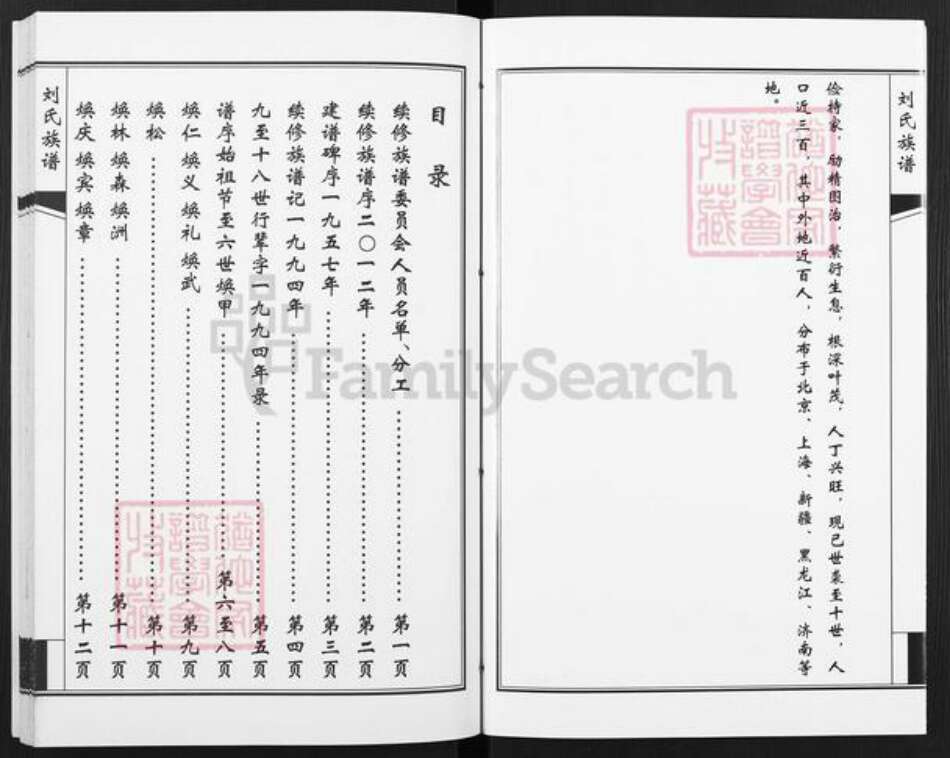 刘氏族谱
俭持家，励精图治，繁衍生息，根深叶茂，人丁兴旺，现已世袭至十世，人
口近三百，其中外地近百人，分布于北京、上海、新疆、黑龙江、济南等
地。
目 录
续修族谱委员会人员名单、分工……第一页
续修族谱序二〇一二年……第二页
建谱碑序一九五七年……第三页
续修族谱记一九九四年……第四页
九至十八世行辈字一九九四年录……第五页
谱序始祖节至六世焕甲……第六至八页
焕仁 焕义 焕礼 焕武……第九页
焕松……第十页
焕林 焕森 焕洲……第十一页
焕庆 焕宾 焕章……第十二页
刘氏族谱
FamilySearch